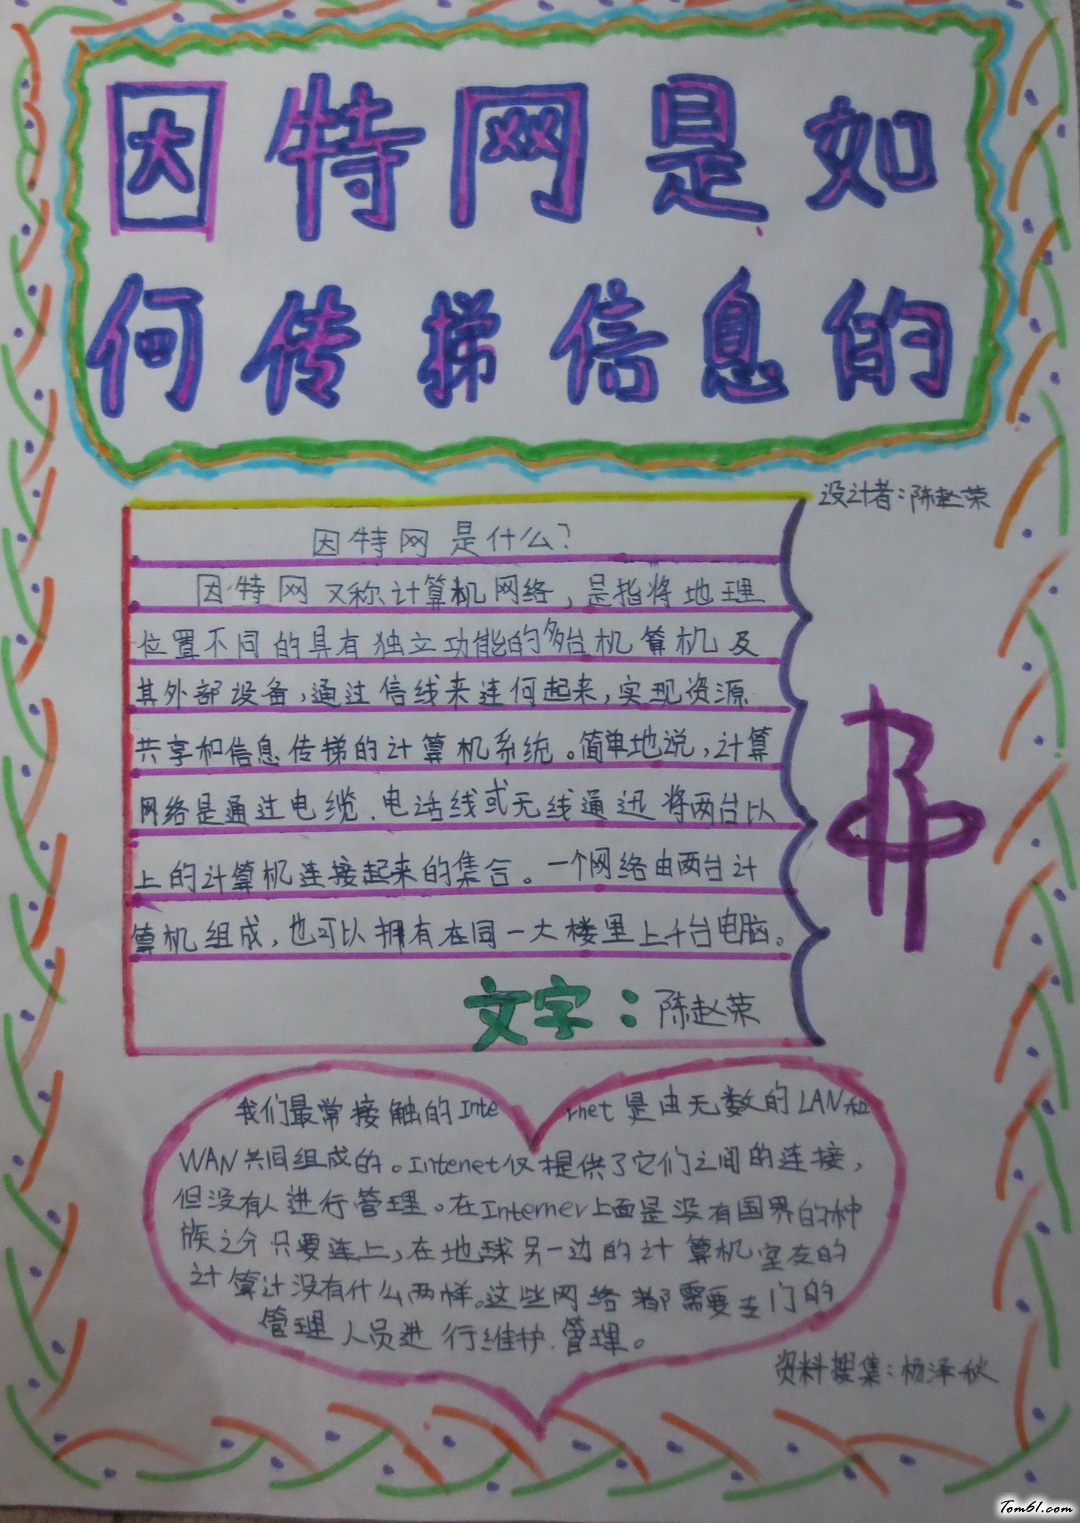 因特网是如
何传递信息的
设计者：陈赵荣
因特网是什么？
因特网又称计算机网络，是指将地理
位置不同的具有独立功能的多台机算机及
其外部设备，通过信线来连何起来，实现资源
共享和信息传梯的计算机系统。简单地说，计算
网络是通过电缆、电话线或无线通迅将两台以
上的计算机连接起来的集合。一个网络由两台计
算机组成，也可以拥有在同一大楼里上千台电脑。
文字：陈赵荣
我们最常接触的Internet是由无数的LAN和
WAN共同组成的。Intenet仅提供了它们之间的连接，
但没有人进行管理。在Internev上面是没有国界的种
族之分只要连上，在地球另一边的计算机室友的
计算计没有什么两样。这些网络都需要专门的
管理人员进行维护、管理。
资料搜集：杨泽秋
Tom61.com